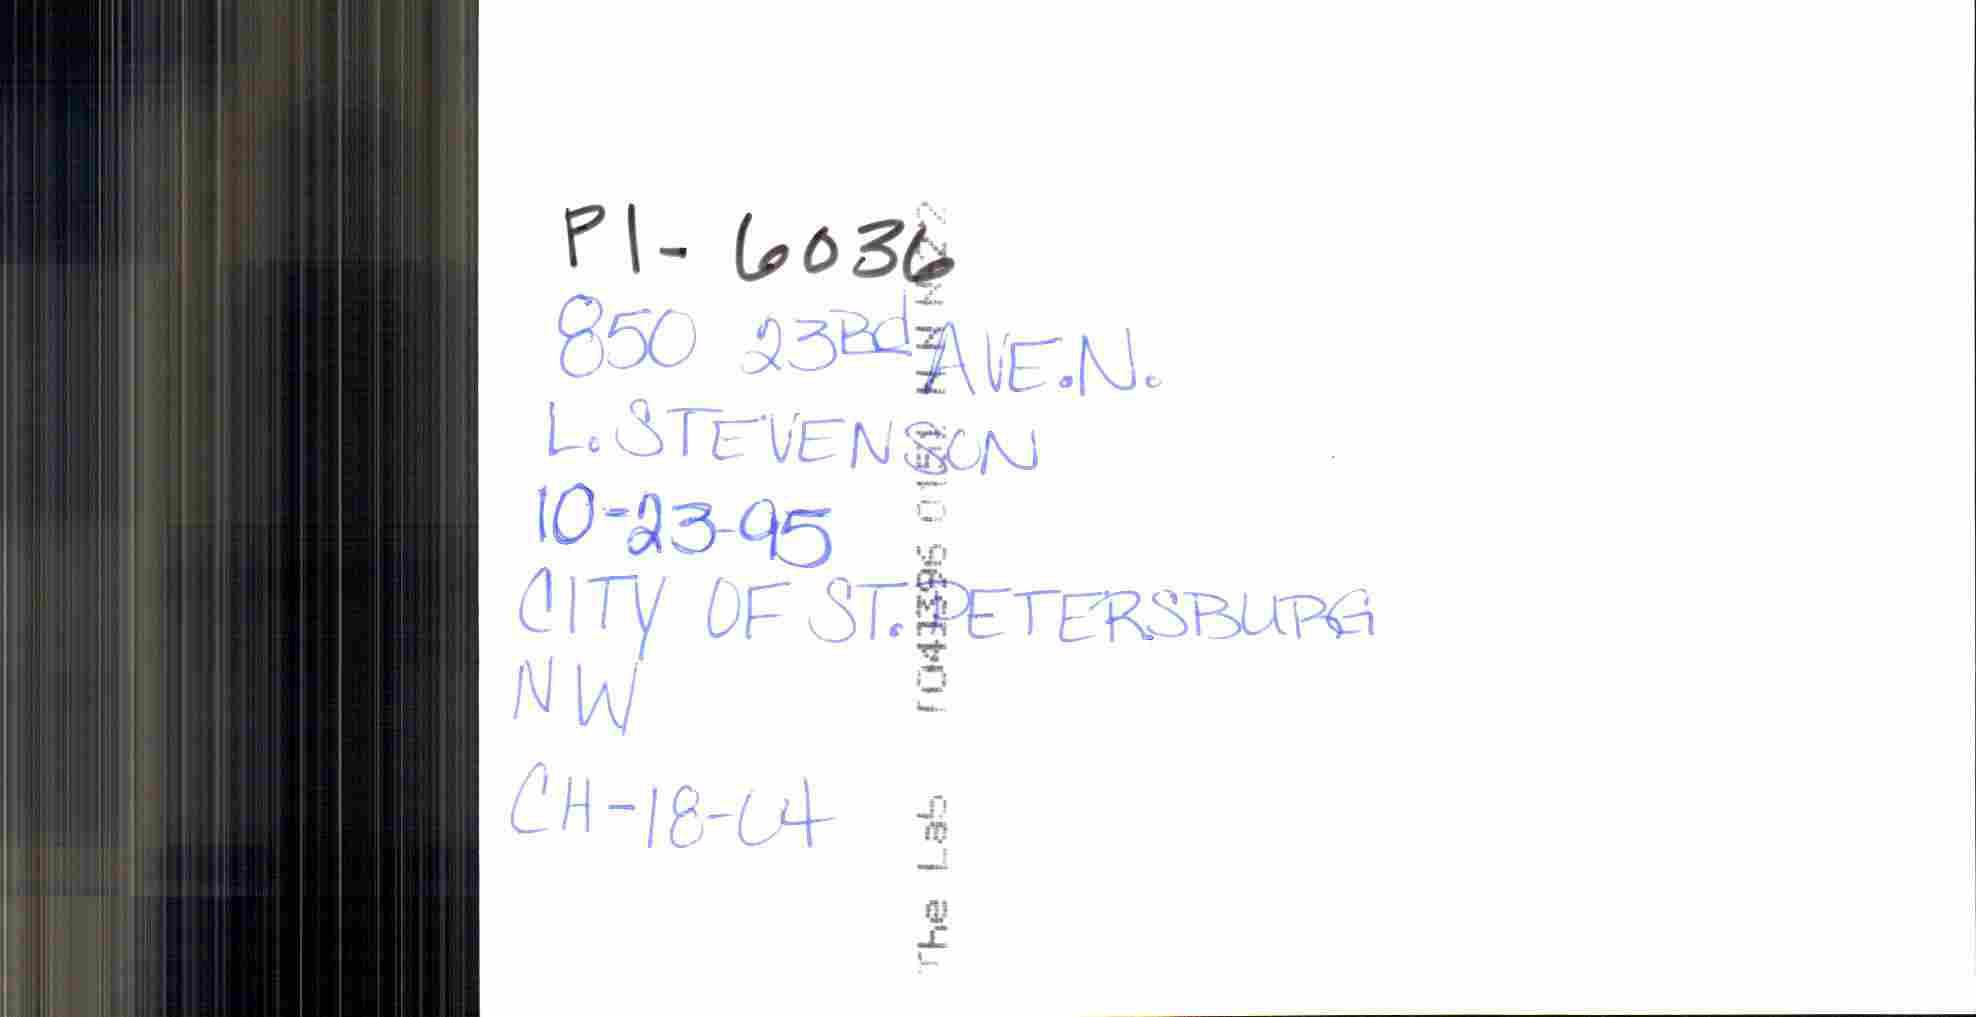 PI-6036
850 23Rd AVE.N.
L. STEVENSON
10-23-95
CITY OF ST. PETERSBURG
NW
CH-18-C4
The Lab